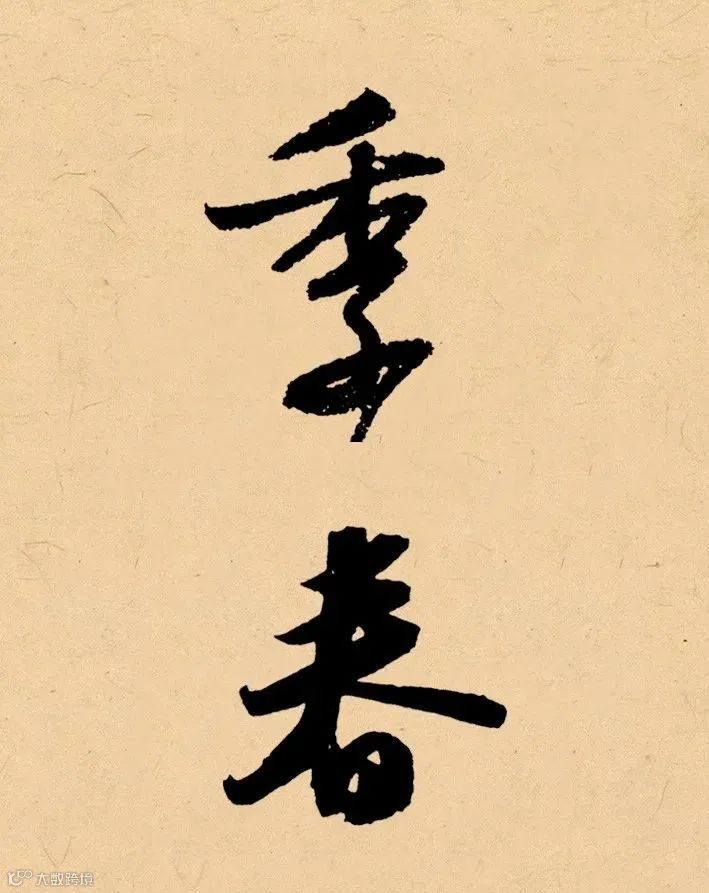 季
春
大数跨境